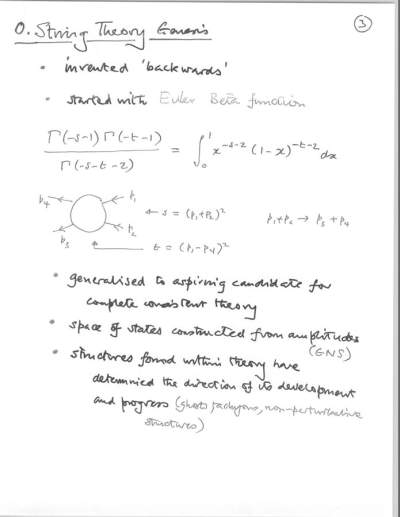 3
0. String Theory Genesis
• invented 'backwards'
• started with Euler Beta function
Γ(-s-1) Γ(-t-1) / Γ(-s-t-2) = ∫₀¹ x^{-s-2} (1-x)^{-t-2} dx
p₄ p₁
← s = (p₁+p₂)² p₁+p₂ → p₃+p₄
p₃ p₂
t = (p₁-p₄)²
• generalised to aspiring candidate for
complete consistent theory
• space of states constructed from amplitudes
(GNS)
• structures found within theory have
determined the direction of its development
and progress (ghosts, tachyons, non-perturbative
structures)